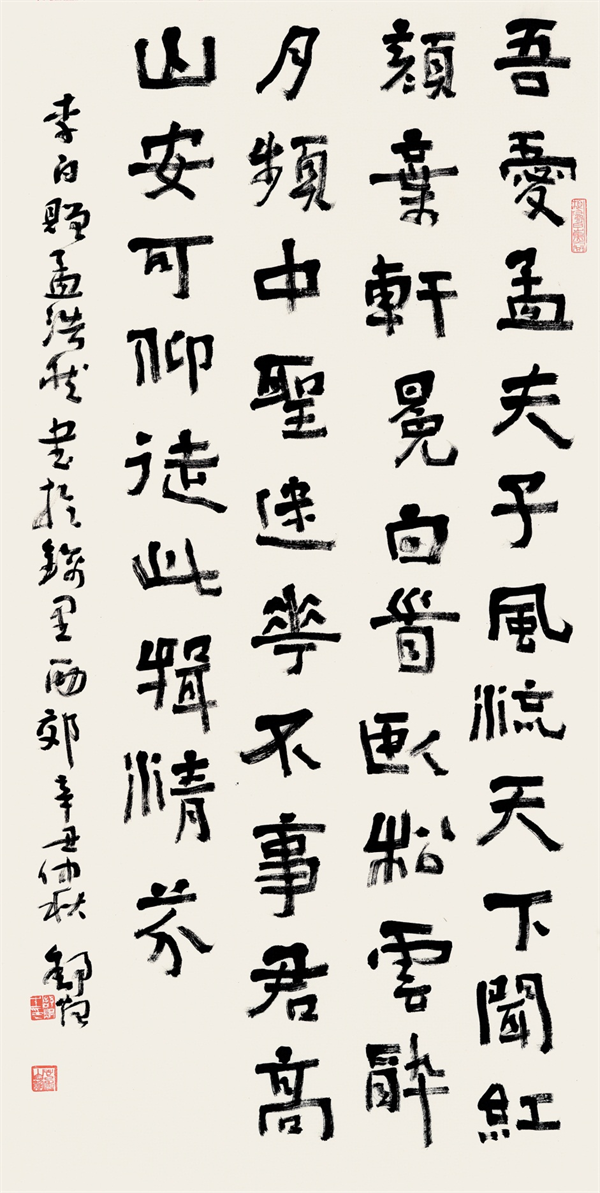 吾愛孟夫子風流天下聞紅
顏棄軒冕白首臥松雲醉
月頻中聖迷花不事君高
山安可仰徒此揖清芬
李白贈孟浩然書於錦里西郊辛丑仲秋